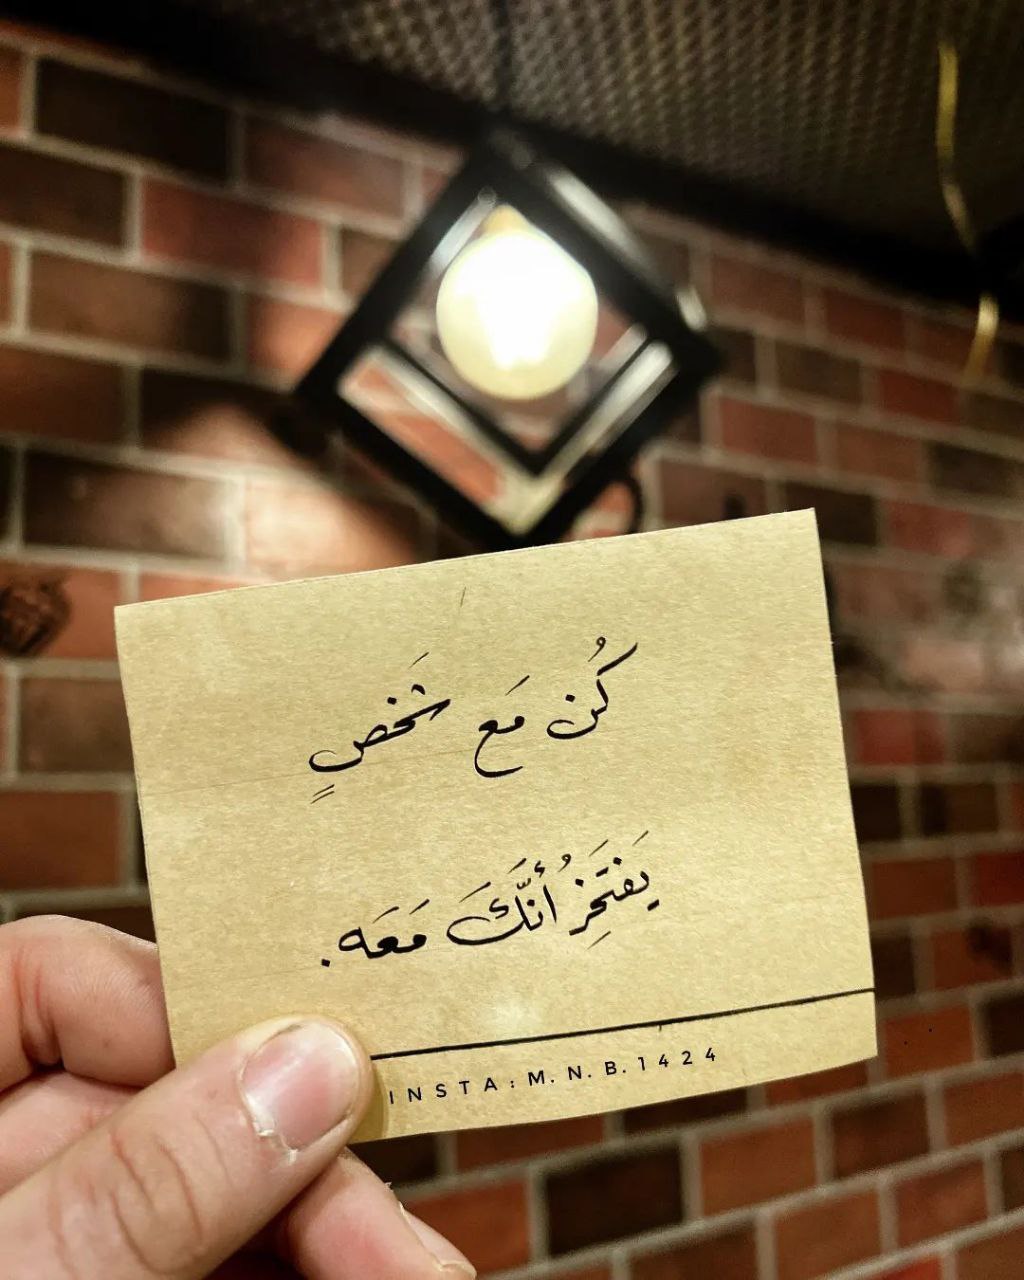 كُن مَع شَخصٍ
يَفتَخِرُ أنَّكَ مَعَه.
INSTA: M. N. B. 1424